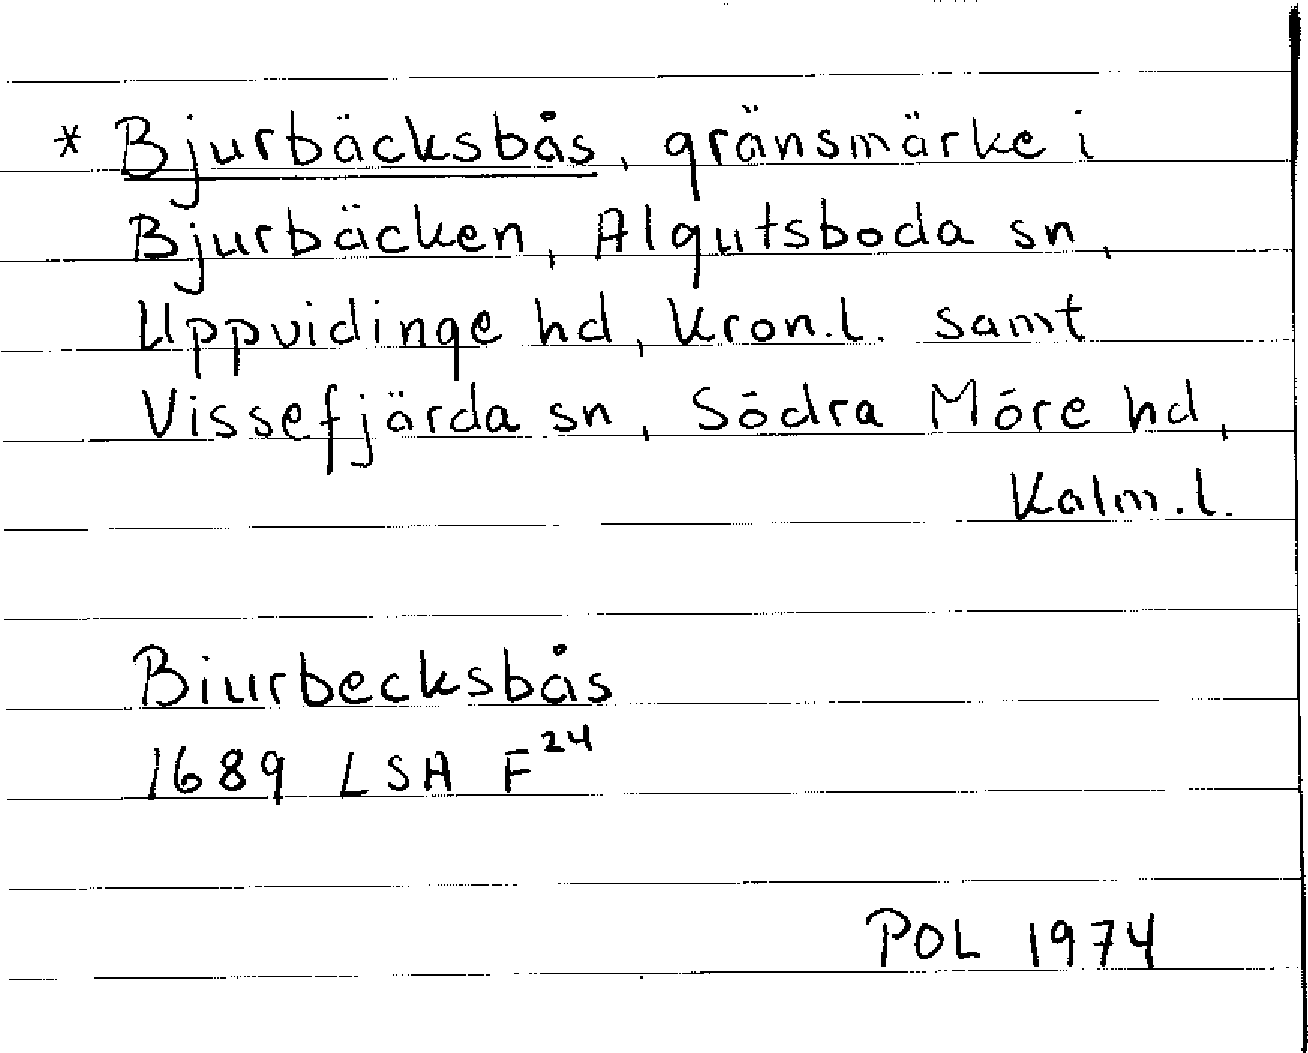 * Bjurbäcksbås, gränsmärke i
Bjurbäcken, Algutsboda sn,
Uppvidinge hd, Kron.l. samt
Vissefjärda sn, Södra Möre hd,
Kalm.l.
Biurbecksbås
1689 LSA F²⁴
POL 1974